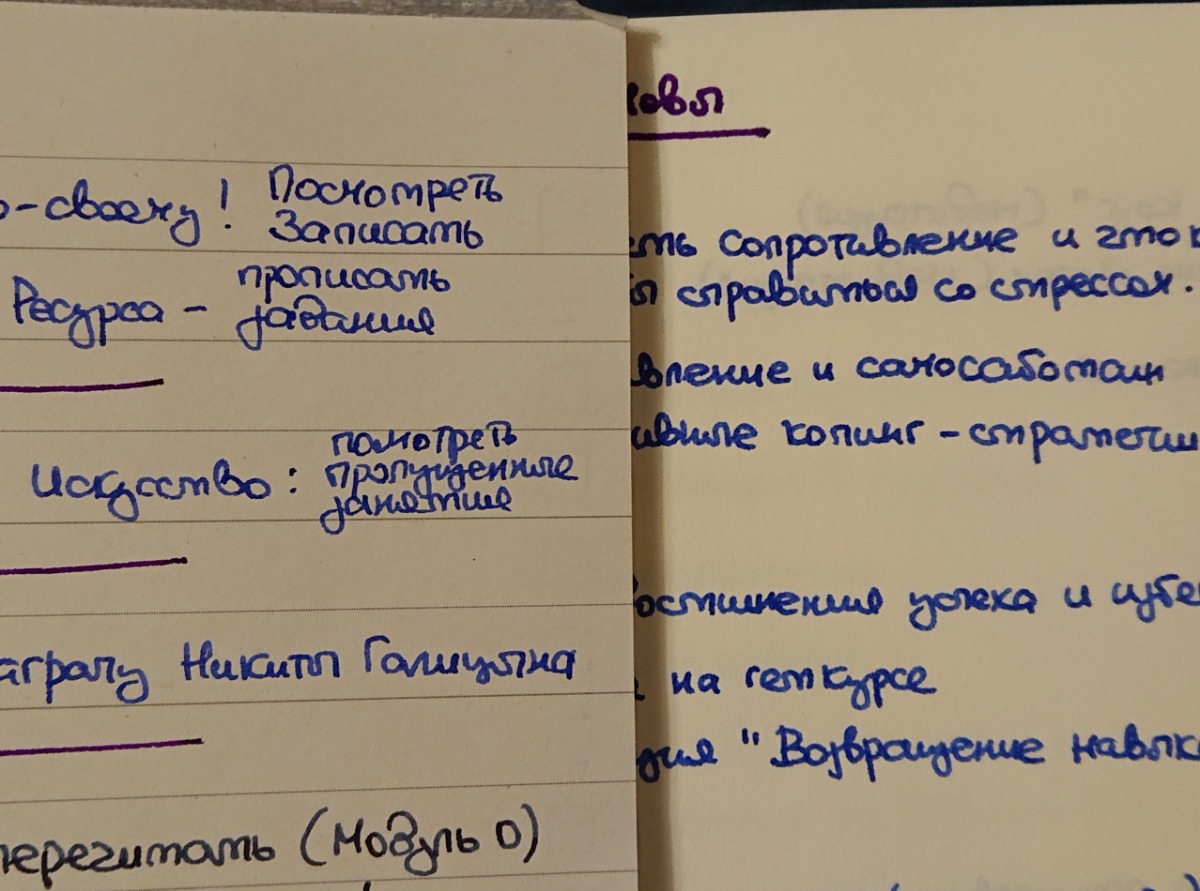 о-своему! Посмотреть
Записать
Ресурса - прописать
задания
Искусство: помотреть
пропущенные
занятия
Никиты Голицына
перечитать (Модуль 0)
ковы
сть сопротивление и что
ы справиться со стрессом.
вление и самосаботаж
ивные копинг-стратегии
достижения успеха и избе
на геткурсе
дия "Возвращение навык